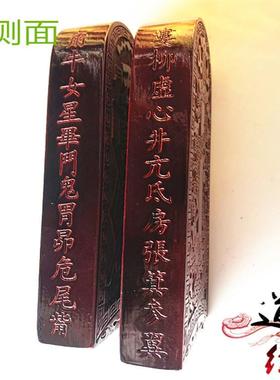 侧面
牛女星畢鬥鬼胃昴危尾觜
婁柳虛心井亢氐房張箕參翼
道